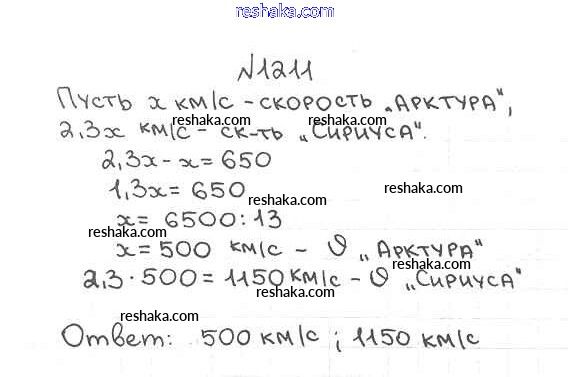 reshaka.com
№1211
Пусть x км/с - скорость „Арктура",
2,3x км/с - ск-ть „Сириуса".
reshaka.com
2,3x - x = 650
1,3x = 650
reshaka.com
reshaka.com
x = 6500 : 13
reshaka.com
x = 500 км/с - υ „Арктура"
reshaka.com
2,3 · 500 = 1150 км/с - υ „Сириуса"
reshaka.com
reshaka.com
Ответ: 500 км/с ; 1150 км/с
reshaka.com